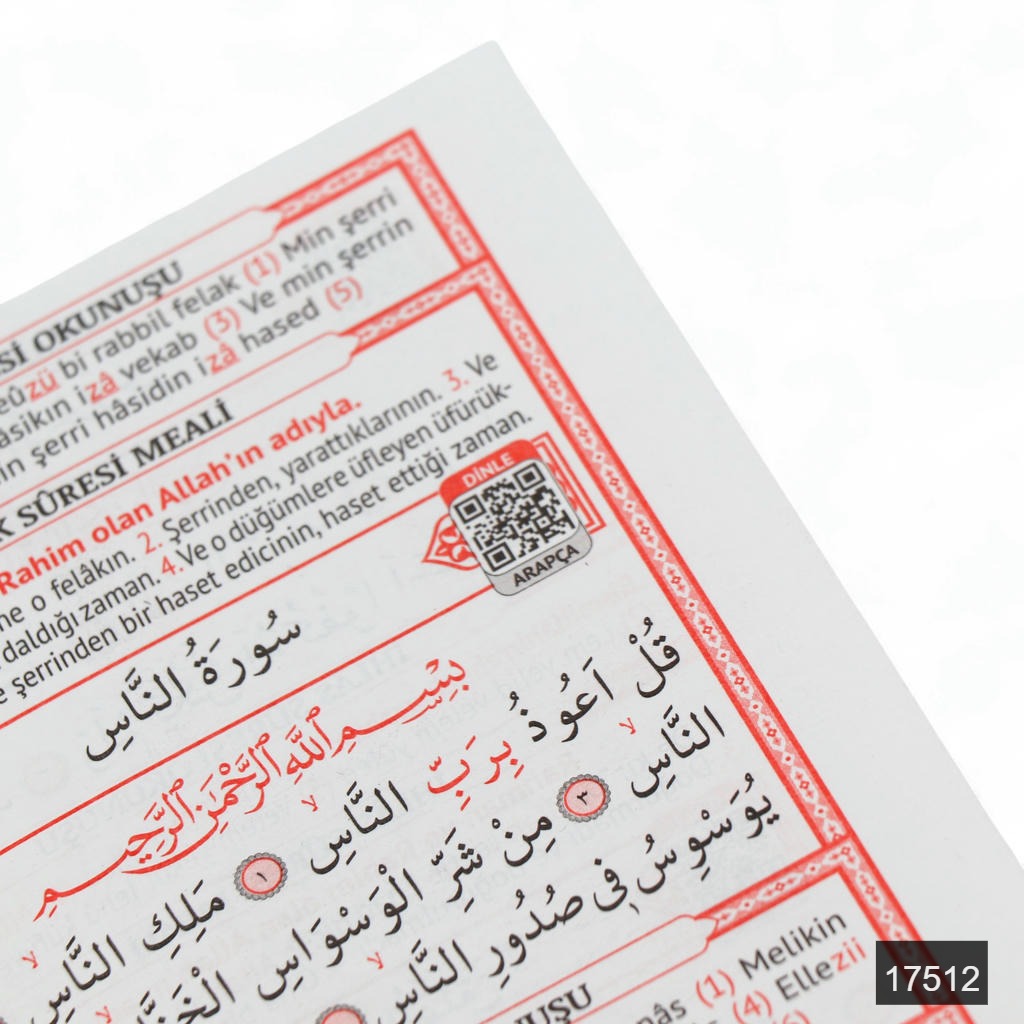 Sİ OKUNUŞU
bi rabbil felak (1) Min şerri
izâ vekab (3) Ve min şerrin
şerri hâsidin izâ hased (5)
SÛRESİ MEALİ
Rahim olan Allah'ın adıyla.
o felâkın. 2. Şerrinden, yarattıklarının. 3. Ve
daldığı zaman. 4. Ve o düğümlere üfleyen üfürük-
şerrinden bir haset edicinin, haset ettiği zaman.
DİNLE
ARAPÇA
سُورَةُ النَّاسِ
بِسْمِ اللّٰهِ الرَّحْمٰنِ الرَّحِيمِ
قُلْ اَعُوذُ بِرَبِّ النَّاسِ ١ مَلِكِ النَّاسِ
النَّاسِ ٣ مِنْ شَرِّ الْوَسْوَاسِ
يُوَسْوِسُ فِى صُدُورِ النَّاسِ
(1) Melikin
(4) Ellezii
17512